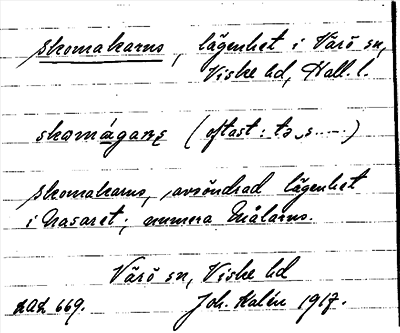 Skomakarns, lägenhet i Värö sn,
Viske hd, Hall. l.
skomágarns (oftast: to s......)
Skomakarns, avsöndrad lägenhet
i Nasaret; numera Målarns.
Värö sn, Viske hd
669. Joh. Kalén 1917.